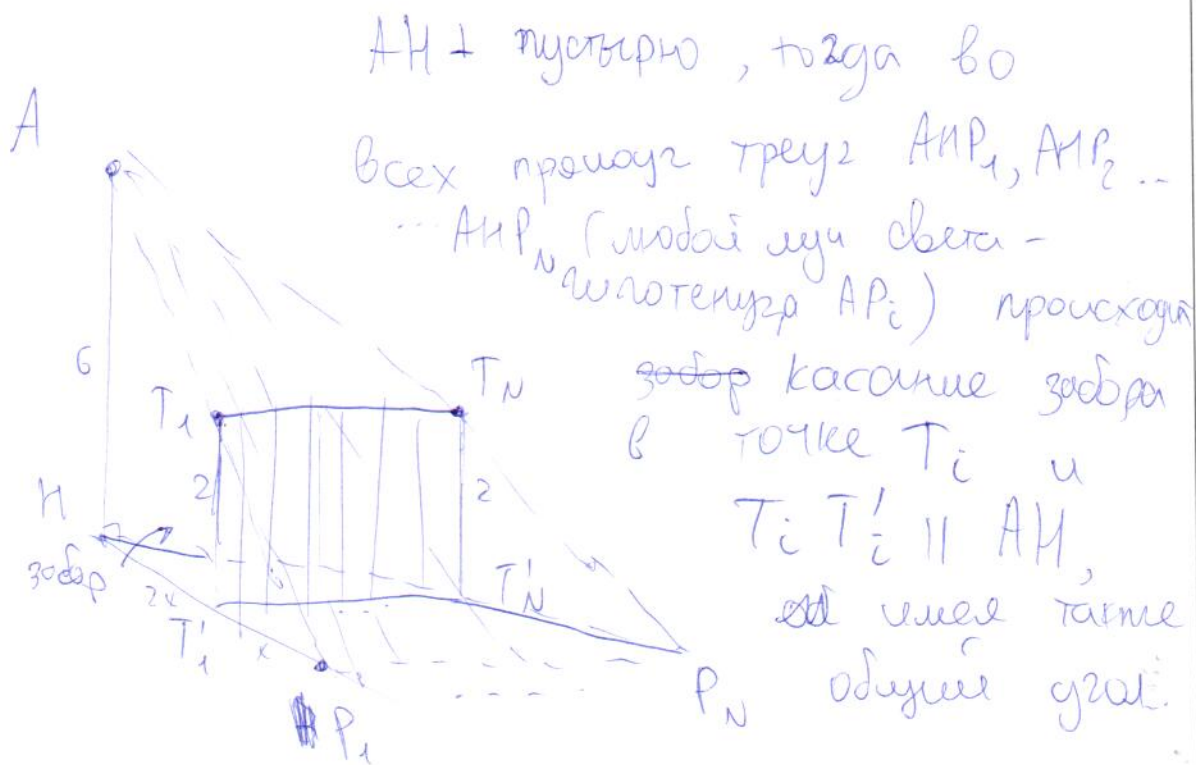 AH ⊥ пустырю, тогда во
всех прямоуг треуг AHP₁, AHP₂ ...
... AHP_N (любой луч света -
гипотенуза AP_i) происходит
забор касание забора
в точке T_i и
T_i T'_i || AH,
имея также
общий угол.
A
6
T₁
T_N
2
2
H
забор
2x
T'₁
x
T'_N
P₁
P_N